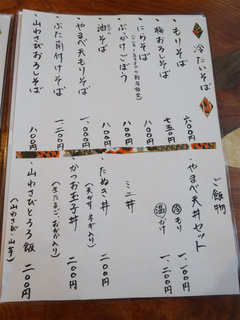 冷たいそば
・もりそば 六〇〇円
・梅おろしそば 七五〇円
・にらそば 八〇〇円
・ぶっかけごぼう 八〇〇円
・油そば 八〇〇円
・やまべ天もりそば 一、〇〇〇円
・ぶた肩付けそば 一、二〇〇円
・山わさびおろしそば 八〇〇円
ご飯物
・やまべ天丼セット
冷 もり 一、一〇〇円
温 かけ 一、一〇〇円
ミニ丼
・たぬき丼 二〇〇円
(天かす、ネギ入り)
・かつお玉子丼 二〇〇円
(生たまご、おかか入り)
・山わさびとろろ飯 二〇〇円
(山わさび・山芋)